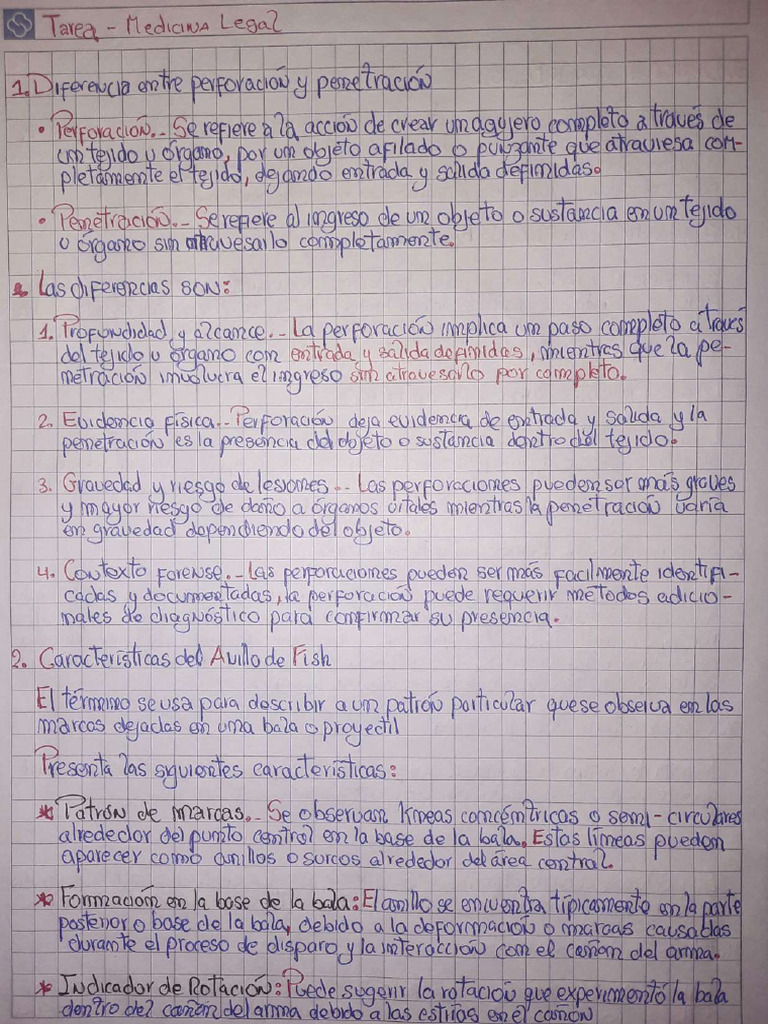 Tarea - Medicina Legal
1. Diferencia entre perforación y penetración
• Perforación.- Se refiere a la acción de crear un agujero completo a través de
un tejido u órgano, por un objeto afilado o punzante que atraviesa com-
pletamente el tejido, dejando entrada y salida definidas.
• Penetración.- Se refiere al ingreso de un objeto o sustancia en un tejido
u órgano sin atravesarlo completamente.
• Las diferencias son:
1. Profundidad y alcance.- La perforación implica un paso completo a través
del tejido u órgano con entrada y salida definidas, mientras que la pe-
netración involucra el ingreso sin atravesarlo por completo.
2. Evidencia física.- Perforación deja evidencia de entrada y salida y la
penetración es la presencia del objeto o sustancia dentro del tejido.
3. Gravedad y riesgo de lesiones.- Las perforaciones pueden ser más graves
y mayor riesgo de daño a órganos vitales mientras la penetración varía
en gravedad dependiendo del objeto.
4. Contexto forense.- Las perforaciones pueden ser más facilmente identifi-
cadas y documentadas, la perforación puede requerir métodos adicio-
nales de diagnóstico para confirmar su presencia.
2. Características del Anillo de Fish
El término se usa para describir a un patrón particular que se observa en las
marcas dejadas en una bala o proyectil
Presenta las siguientes características:
* Patrón de marcas.- Se observan líneas concéntricas o semi-circulares
alrededor del punto central en la base de la bala. Estas líneas pueden
aparecer como anillos o surcos alrededor del área central.
* Formación en la base de la bala: El anillo se encuentra típicamente en la parte
posterior o base de la bala, debido a la deformación o marcas causadas
durante el proceso de disparo y la interacción con el cañon del arma.
* Indicador de Rotación: Puede sugerir la rotación que experimentó la bala
dentro del cañon del arma debido a las estrías en el cañón